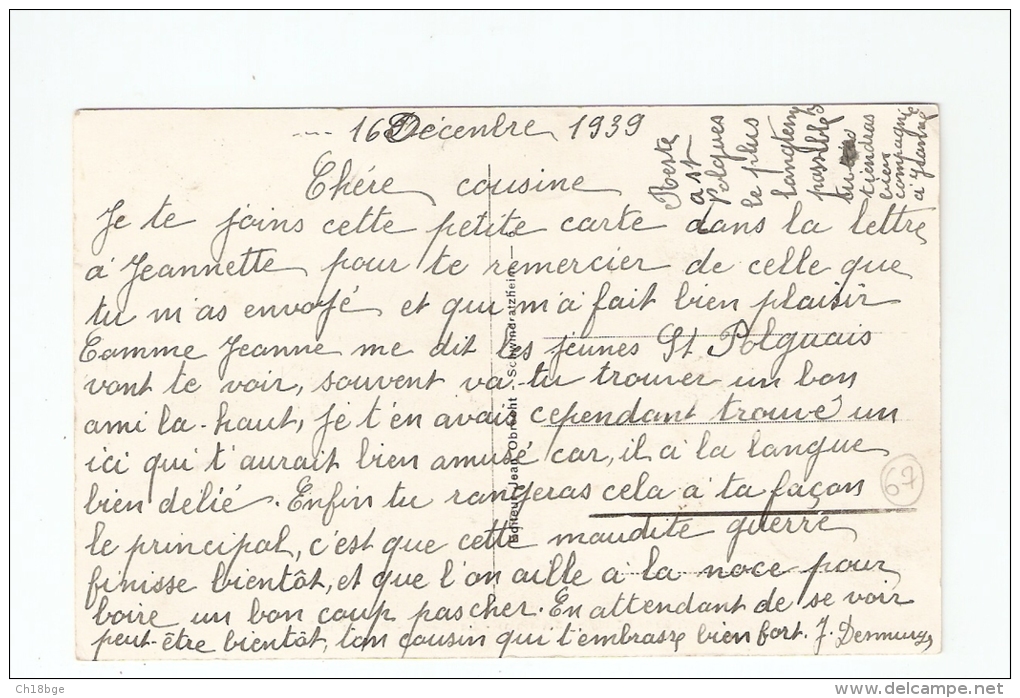 16 Décembre 1939
Chére cousine
Je te joins cette petite carte dans la lettre
a Jeannette pour te remercier de celle que
tu m'as envoyé et qui m'a fait bien plaisir
Comme Jeanne me dit les jeunes St Polguais
vont te voir, souvent va-tu trouver un bon
ami la-haut, je t'en avais cependant trouvé un
ici qui t'aurait bien amusé car, il a la langue
bien delié. Enfin tu rangeras cela a ta façon
le principal, c'est que cette maudite guerre
finisse bientôt, et que l'on aille a la noce pour
boire un bon coup pas cher. En attendant de se voir
peut-être bientôt, ton cousin qui t'embrasse bien fort. J.
Reste
a St
Polgues
le plus
longtemps
possible
tu
tiendras
bien
compagnie
a
Editeur Jean Obrecht - Schwindratzheim - 6
67
Ch18bge
delcampe.net